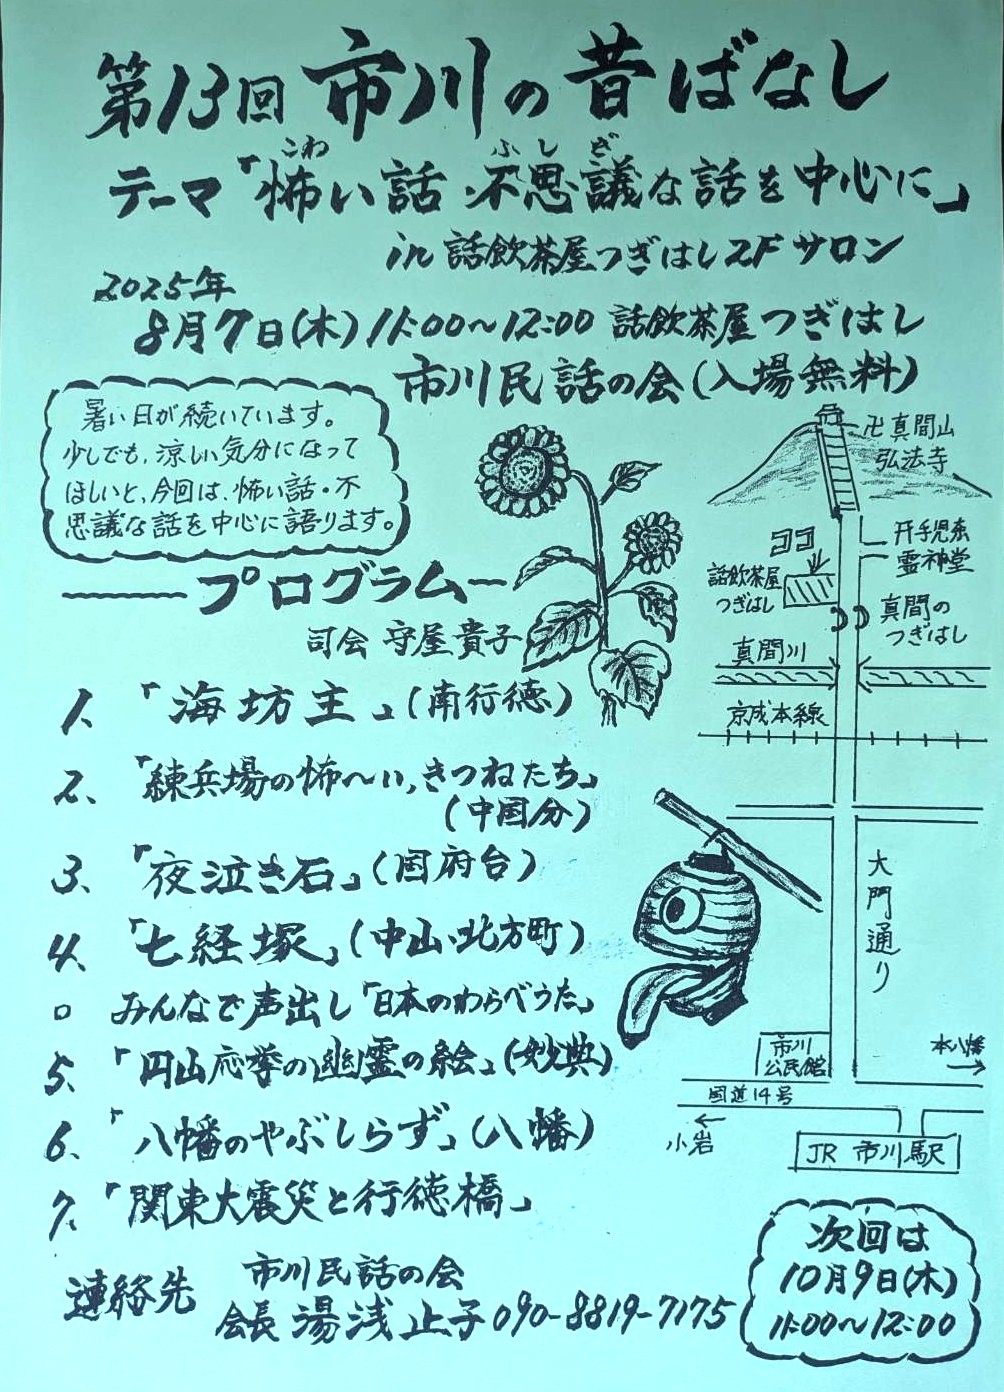 第13回 市川の昔ばなし
こわ ふしぎ
テーマ「怖い話・不思議な話を中心に」
in 話飲茶屋つぎはし2Fサロン
2025年
8月7日(木)11:00〜12:00 話飲茶屋つぎはし
市川民話の会(入場無料)
暑い日が続いています。
少しでも、涼しい気分になって
ほしいと、今回は、怖い話・不
思議な話を中心に語ります。
プログラム
司会 守屋貴子
1、「海坊主」(南行徳)
2、「練兵場の怖〜い、きつねたち」
(中国分)
3、「夜泣き石」(国府台)
4、「七経塚」(中山・北方町)
○ みんなで声出し「日本のわらべうた」
5、「円山応挙の幽霊の絵」(妙典)
6、「八幡のやぶしらず」(八幡)
7、「関東大震災と行徳橋」
連絡先
市川民話の会
会長 湯浅止子 090-8819-7175
卍真間山
弘法寺
手児奈
霊神堂
話飲茶屋
つぎはし
真間の
つぎはし
真間川
京成本線
大門通り
市川
公民館
本八幡
→
国道14号
←
小岩
JR 市川駅
次回は
10月9日(木)
11:00〜12:00